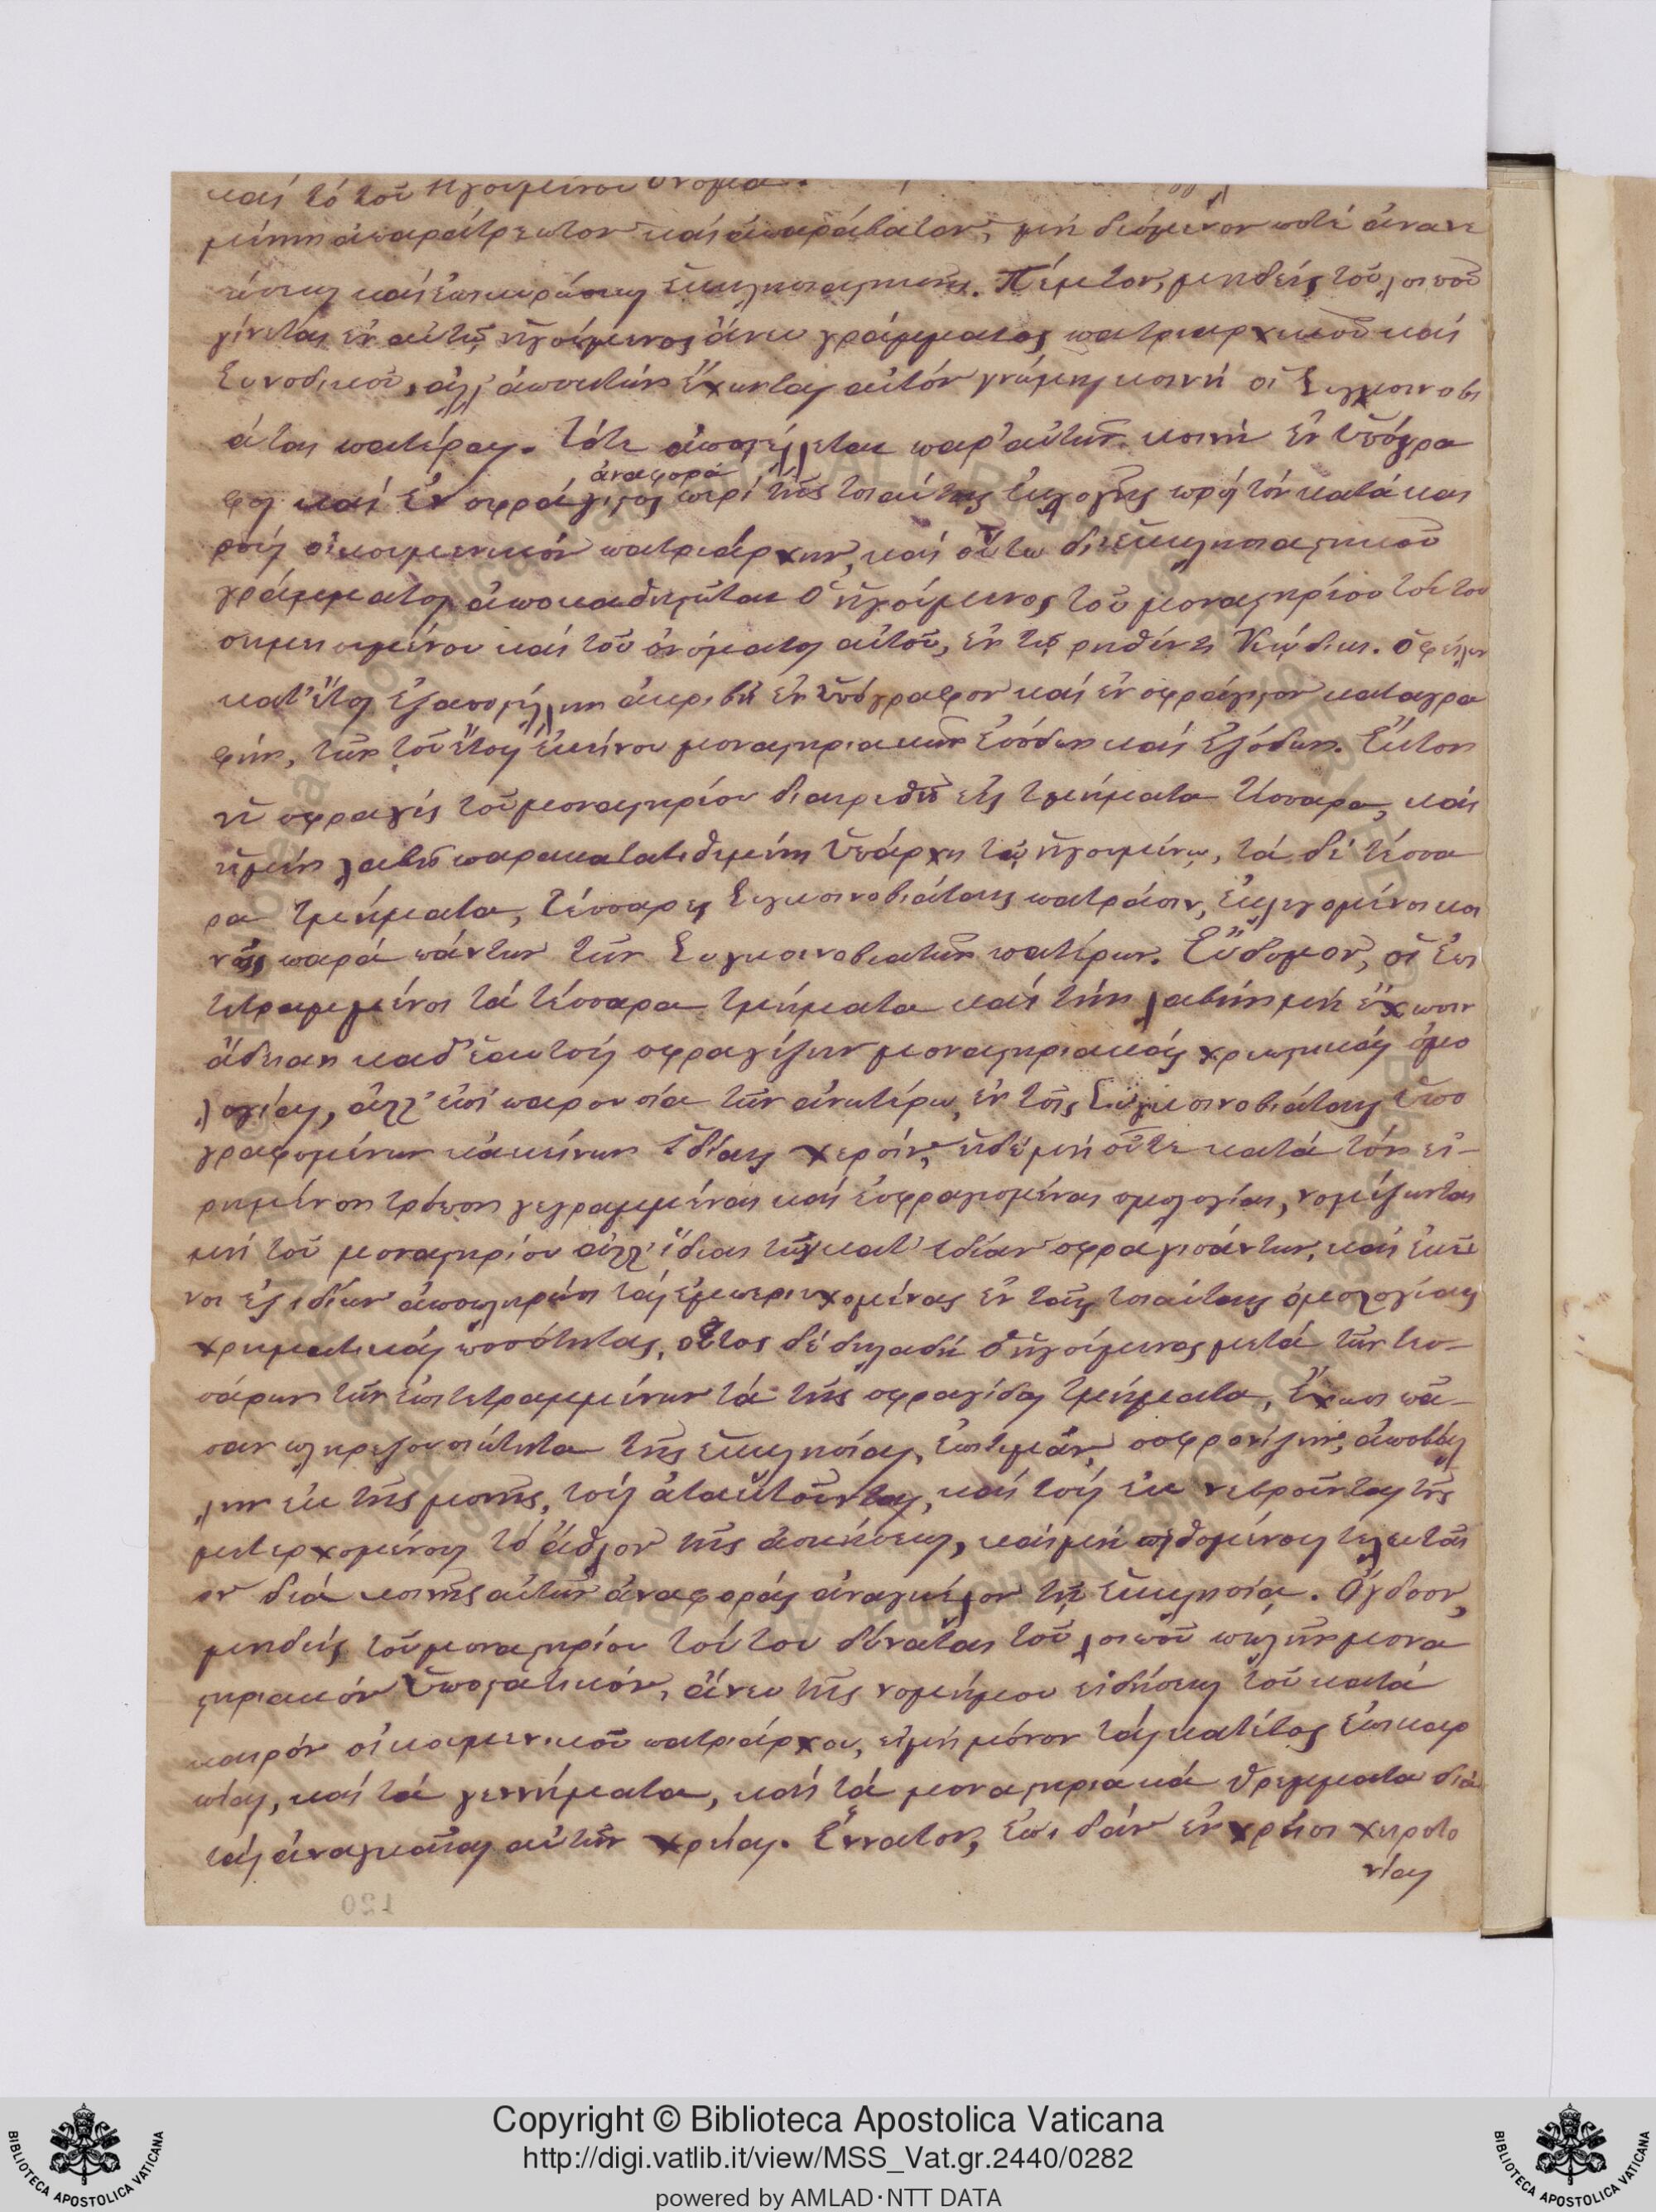 καὶ τὸ τοῦ ἡγουμένου ὄνομα.
μένῃ ἀπαράτρεπτον καὶ ἀπαράβατον, μὴ δεόμενον ποτὲ ἀνανε
ώσεως καὶ ἐπικυρώσεως ἐκκλησιαστικῆς. Πέμπτον, μηδεὶς τοῦ λοιποῦ
γίνεται ἐν αὐτῷ ἡγούμενος ἄνευ γράμματος πατριαρχικοῦ καὶ
Συνοδικοῦ, ἀλλ' αὐτὸν γνώμῃ κοινῇ οἱ Συγκοινοβι
άται πατέρες. τότε ἀποστέλλεται παρ' αὐτῶν κοινὴ ἐνυπόγρα
ἀναφορὰ
φος καὶ ἐνσφράγιστος περὶ τῆς τοιαύτης ἐκλογῆς πρὸς τὸν κατὰ και
ροὺς οἰκουμενικὸν πατριάρχην, καὶ οὕτω δι' ἐκκλησιαστικοῦ
γράμματος ἀποκαθιστᾶται ὁ ἡγούμενος τοῦ μοναστηρίου τούτου
σημειουμένου καὶ τοῦ ὀνόματος αὐτοῦ, ἐν τῷ ῥηθέντι Κώδικι. ὀφείλων
κατ' ἔτος ἐξαποστέλλειν ἀκριβῆ ἐνυπόγραφον καὶ ἐνσφράγιστον καταγρα
φὴν, τῶν τοῦ ἔτους ἐκείνου μοναστηριακῶν ἐσόδων καὶ ἐξόδων. Ἕκτον
ἡ σφραγὶς τοῦ μοναστηρίου διαιρεθῇ εἰς τμήματα τέσσαρα, καὶ
ἡ μὲν λαβὴ παρακατατιθεμένη ὑπάρχῃ τῷ ἡγουμένῳ, τὰ δὲ τέσσα
ρα τμήματα, τέσσαρες Συγκοινοβιάταις πατράσιν, ἐκλεγομένοι κοι
νῶς παρὰ πάντων τῶν Συγκοινοβιατῶν πατέρων. Ἕβδομον, οἱ ἐπι
τετραμμένοι τὰ τέσσαρα τμήματα καὶ τὴν λαβὴν μὴ ἔχωσιν
ἄδειαν καθ' ἑαυτοὺς σφραγίζειν μοναστηριακὰς χρεωστικὰς ὁμο
λογίας, ἀλλ' ἐπὶ παρουσία τῶν ἀνωτέρω, ἐν τοῖς Συγκοινοβιάταις ὑπο
γραφομένων κἀκείνων ἰδίαις χερσίν, εἰ δὲ μὴ οὔτε κατὰ τὸν εἰ-
ρημένον τρόπον γεγραμμέναι καὶ ἐσφραγισμέναι ὁμολογίαι, νομίζωνται
μὴ τοῦ μοναστηρίου ἀλλ' ἴδιαι τῶν κατ' ἰδίαν σφραγισάντων, καὶ ἐκεῖ
νοι ἐξ ἰδίων ἀποπληρῶσι τὰς ἐμπεριεχομένας ἐν ταῖς τοιαύταις ὁμολογίαις
χρηματικὰς ποσότητας, οὗτος δὲ δηλαδὴ ὁ ἡγούμενος μετὰ τῶν τεσ-
σάρων τῶν ἐπιτετραμμένων τὰ τῆς σφραγίδος τμήματα, ἔχωσι πᾶ-
σαν πληρεξουσιότητα τῆς ἐκκλησίας, ἐπιτιμᾶν, σοφρονίζειν, ἀποβάλ
λειν ἐκ τῆς μονῆς, τοὺς ἀτακτοῦντας, καὶ τοὺς ἐκνευροῦντας τῆς
μετερχομένοις τὸ ἆθλον τῆς ἀσκήσεως, καὶ μὴ πειθομένους τελευταῖ
ον διὰ κοινῆς αὐτῶν ἀναφορᾶς ἀναγγέλλον τῇ ἐκκλησίᾳ. Ὄγδοον,
μηδεὶς τοῦ μοναστηρίου τούτου δύναται τοῦ λοιποῦ πωλῆν μονα
στηριακὸν ὑποστατικὸν, ἄνευ τῆς νομήμου εἰδήσεως τοῦ κατὰ
καιρὸν οἰκουμενικοῦ πατριάρχου, εἰ μὴ μόνον τὰς κατ' ἔτος ἐπικαρ
πίας, καὶ τὰ γεννήματα, καὶ τὰ μοναστηριακὰ θρέμματα διὰ
τὰς ἀναγκαίας αὐτῶν χρείας. Ἔννατον, ἐπειδὰν ἐν χρήσει χειροτο
νίας